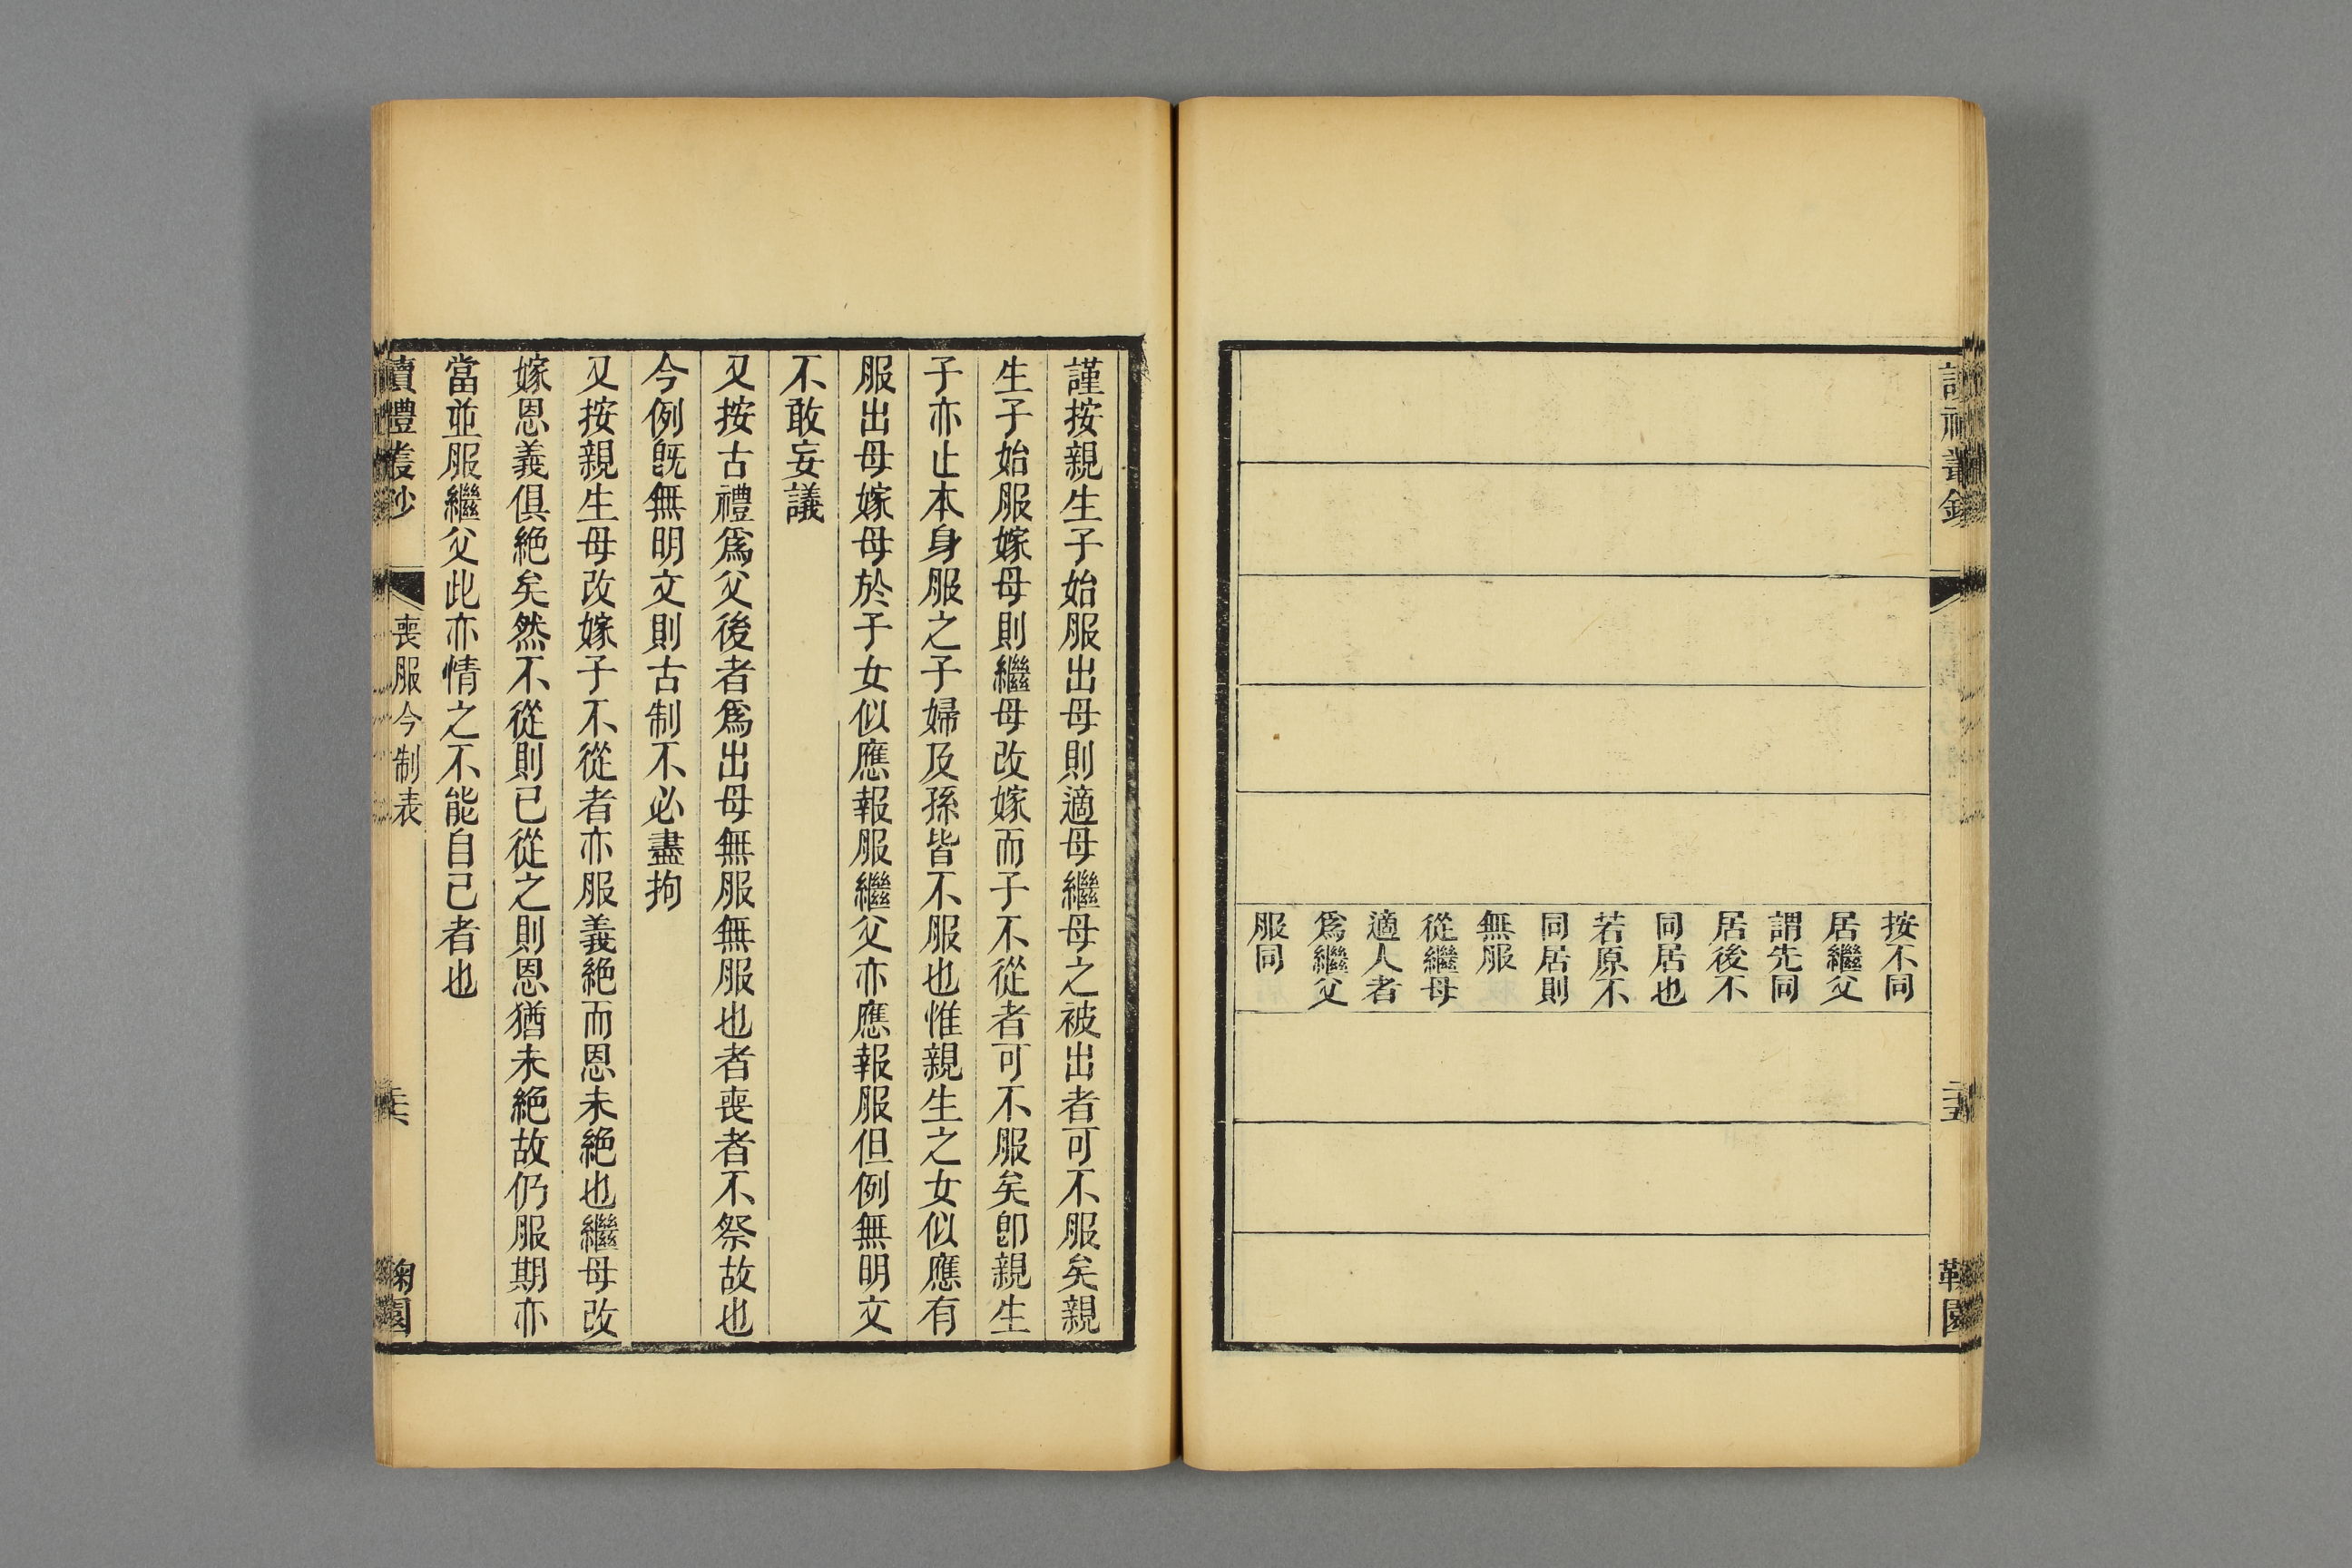 按不同
居繼父
謂先同
居後不
同居也
若原不
同居則
無服
從繼母
適人者
爲繼父
服同
謹按親生子始服出母則適母繼母之被出者可不服矣親
生子始服嫁母則繼母改嫁而子不從者可不服矣卽親生
子亦止本身服之子婦及孫皆不服也惟親生之女似應有
服出母嫁母於子女似應報服繼父亦應報服但例無明文
不敢妄議
又按古禮爲父後者爲出母無服無服也者喪者不祭故也
今例旣無明文則古制不必盡拘
又按親生母改嫁子不從者亦服義絶而恩未絶也繼母改
嫁恩義俱絶矣然不從則已從之則恩猶未絶故仍服期亦
當並服繼父此亦情之不能自己者也
讀禮叢鈔
喪服今制表
鞠園